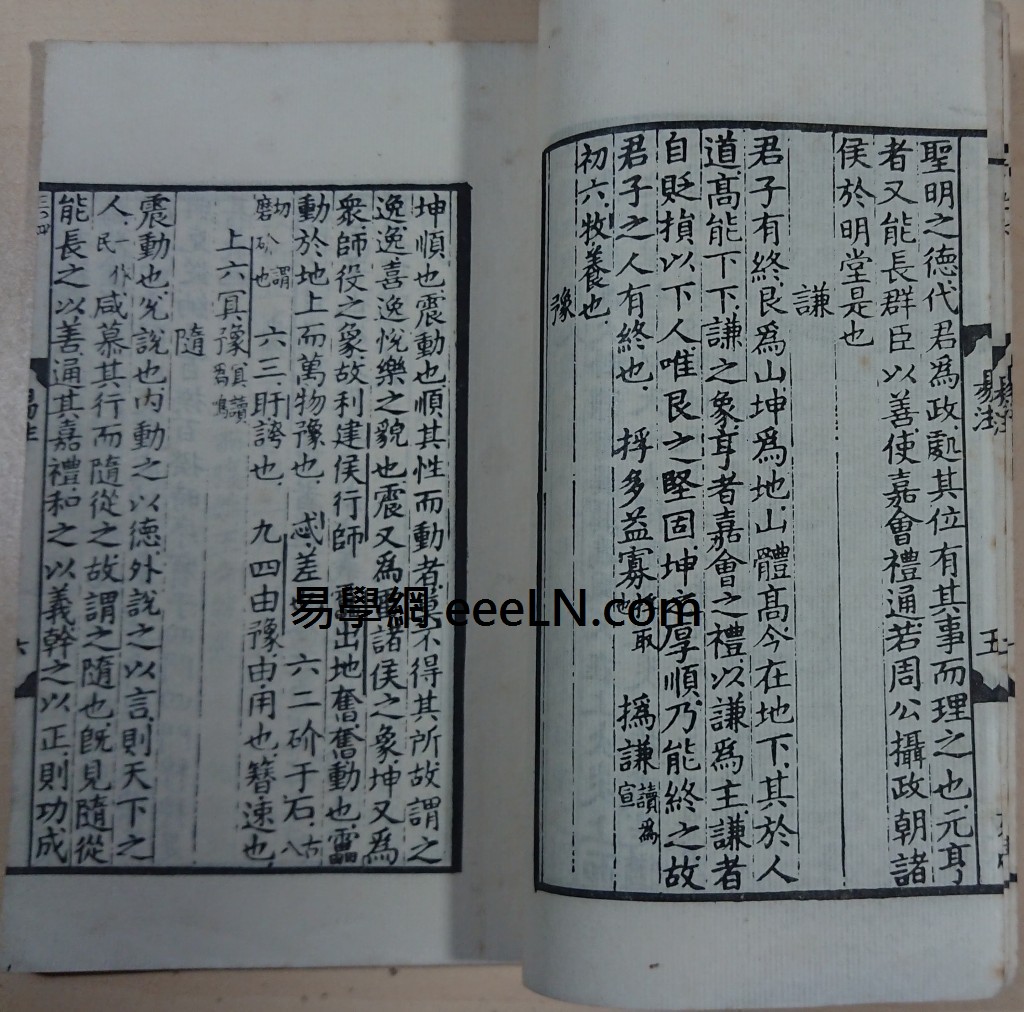 聖明之德代君為政處其位有其事而理之也元亨
者又能長群臣以善使嘉會禮通若周公攝政朝諸
侯於明堂是也
謙
君子有終艮爲山坤爲地山體高今在地下其於人
道高能下下謙之象亨者嘉會之禮以謙爲主謙者
自貶損以下人唯艮之堅固坤厚順乃能終之故
君子之人有終也 捊多益寡取 撝謙讀爲宣
初六牧養也
豫
坤順也震動也順其性而動者不得其所故謂之
逸逸喜逸悅樂之貌也震又為諸侯之象坤又為
衆師役之象故利建侯行師 出地奮奮動也雷
動於地上而萬物豫也 忒差 六二砎于石古八
切謂磨砎也 六三盱誇也 九四由豫由用也簪速也
上六冥豫冥讀為鳴
隨
震動也兌說也內動之以德外說之以言則天下之
人一作民咸慕其行而隨從之故謂之隨也既見隨從
能長之以善通其嘉禮和之以義幹之以正則功成
易注
五
易學網 eeeLN.com